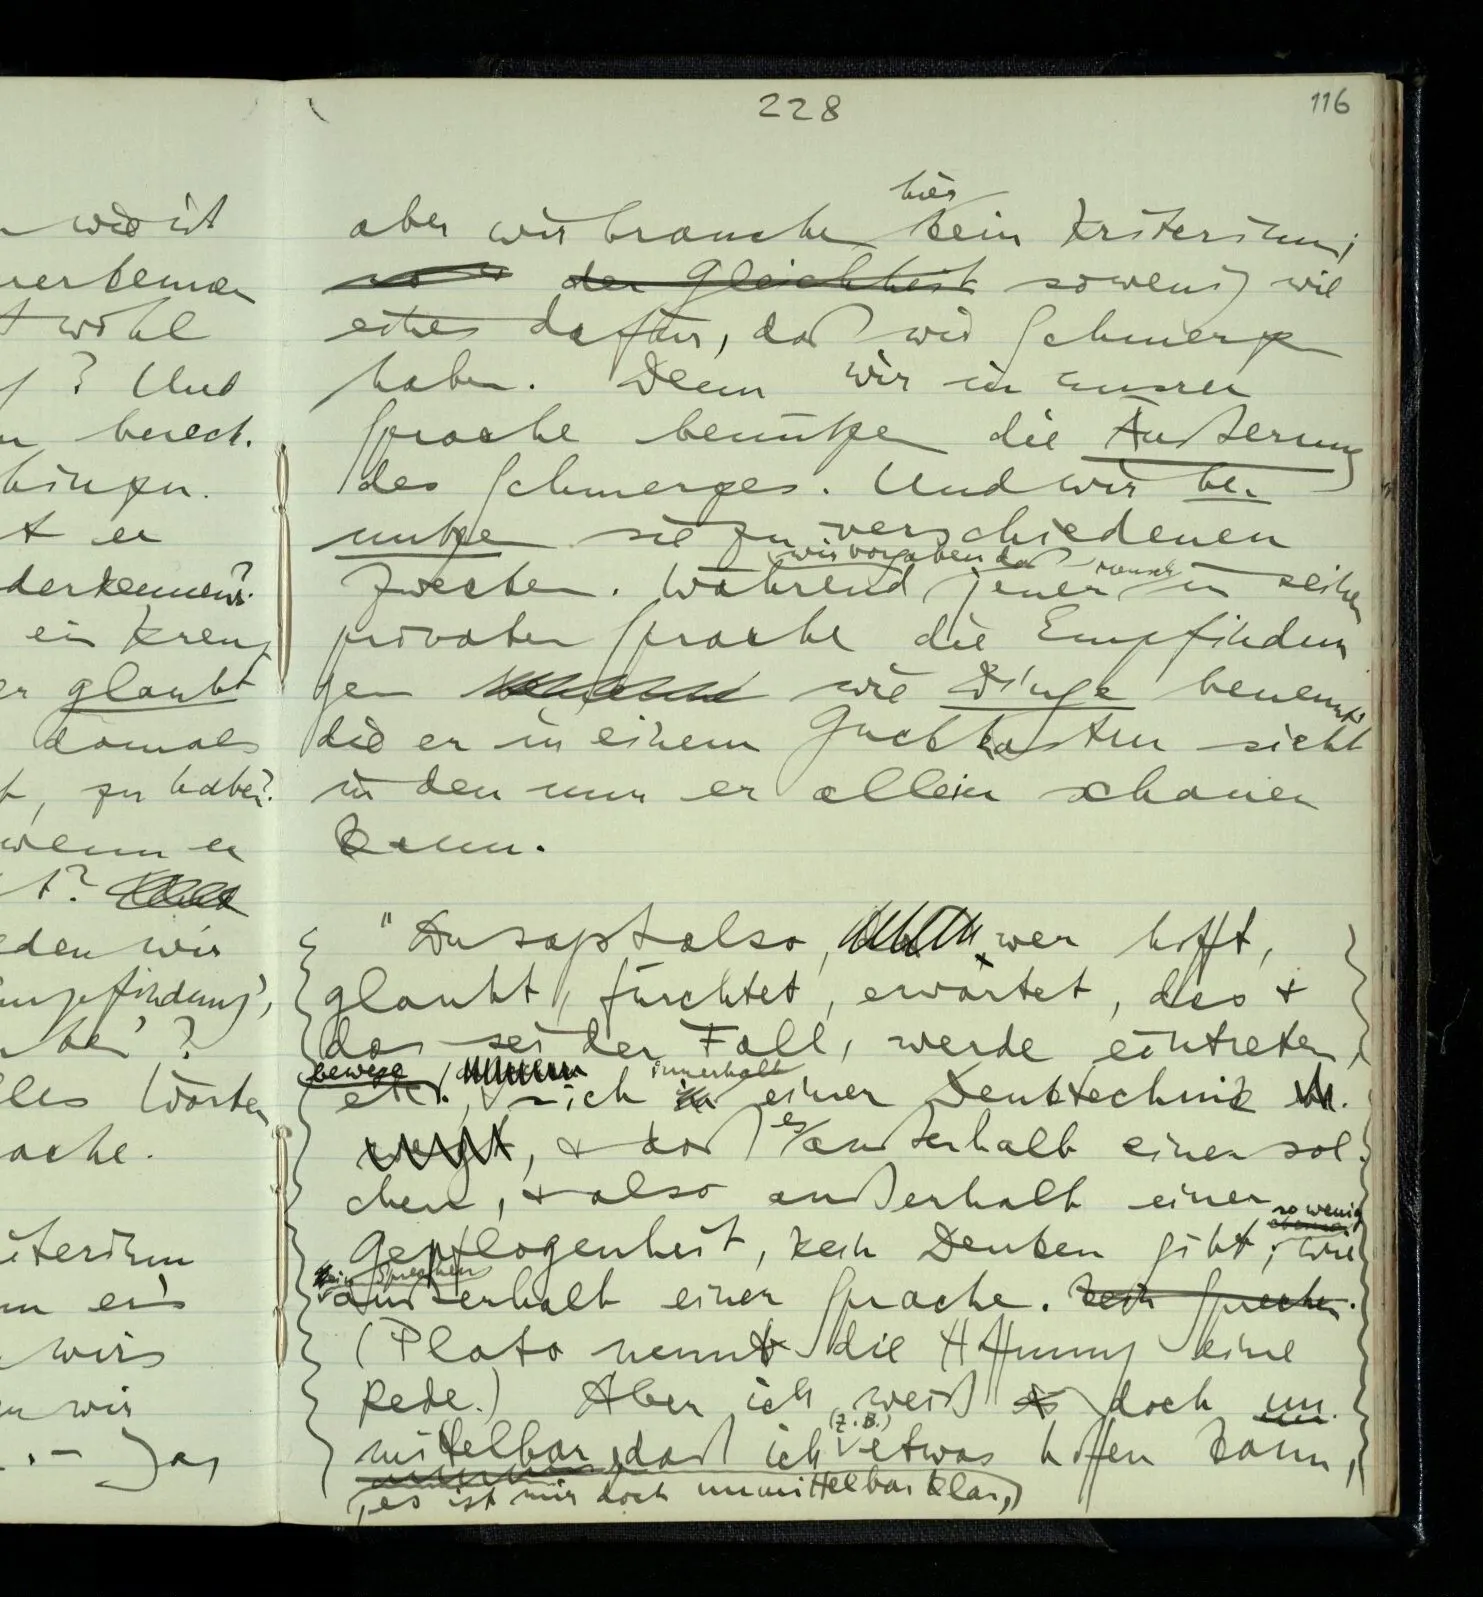 228
116
wie ist
erkennen
wohl
? Und
berech.
t er
ein Kreuz
er glaubt
damals
, zu haben?
wenn er
t?
eden wir
mpfindung',
ben'?
les Wortes
ache.
iterium
wir
wir
. – Ja,
hier
aber wir brauchen kein Kriterium;
der Gleichheit sowenig wie
eines dafür, daß wir Schmerzen
haben. Denn wir in unsrer
Sprache benützen die Äußerung
des Schmerzes. Und wir be-
nützen sie zu verschiedenen
wir vorgaben daß Mensch
Zwecken. Während jener in seiner
privaten Sprache die Empfindun
gen wie Dinge benennt
die er in einem Guckkasten sieht
in den nur er allein schauen
kann.
"Du sagst also, wer hofft,
glaubt, fürchtet, erwartet, das &
das sei der Fall, werde eintreten
bewege innerhalb
etc., sich in einer Denktechnik
, & daß es außerhalb einer sol-
chen, & also außerhalb einer
so wenig
Gepflogenheit, kein Denken gibt; wie
kein Sprechen
außerhalb einer Sprache. kein Sprechen.
(Plato nennt die Hoffnung eine
Rede.) Aber ich weiß es doch un-
(z.B.)
mittelbar, daß ich etwas hoffen kann,
, es ist mir doch unmittelbar klar,)